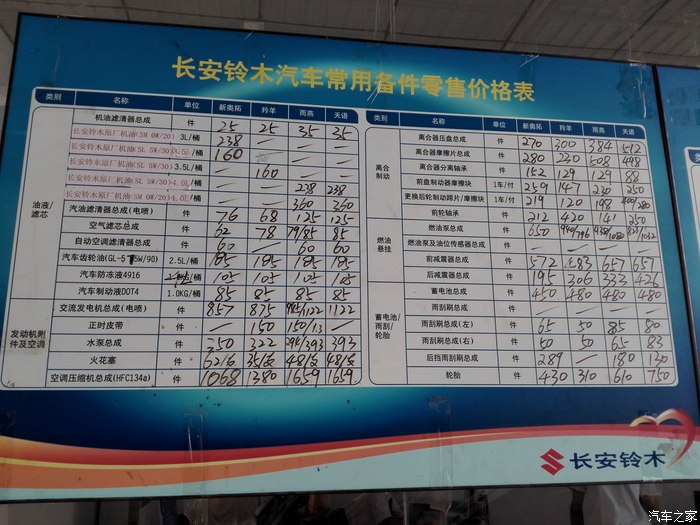 长安铃木汽车常用备件零售价格表
类别 名称 单位 新奥拓 羚羊 雨燕 天语
油液/滤芯
机油滤清器总成 件 25 25 35 35
长安铃木原厂机油(SM 0W/20) 3L/桶 238 — — —
长安铃木原厂机油(SL 5W/30) 3.5L/桶 160 — — —
长安铃木原厂机油(SL 5W/30) /桶 — 160 — —
长安铃木原厂机油(SL 5W/30) 4.0L/桶 — — 238 238
长安铃木原厂机油(SM 0W/20) 4.0L/桶 — — 360 360
汽油滤清器总成(电喷) 件 76 68 125 125
空气滤芯总成 件 62 78 79/85 85
自动空调滤清器总成 件 60 — 60 60
汽车齿轮油(GL-5 75W/90) 2.5L/桶 185 185 185 185
汽车防冻液4916 /桶 105 105 105 105
汽车制动液DOT4 1.0KG/桶 85 85 85 85
发动机附件及空调
交流发电机总成(电喷) 件 857 875 985/1122 1122
正时皮带 件 — 150 150/13 —
水泵总成 件 250 322 296/393 393
火花塞 件 62/6 35/支 48/支 48/支
空调压缩机总成(HFC134a) 件 1068 1380 1659 1659
类别 名称 单位 新奥拓 羚羊 雨燕 天语
离合制动
离合器压盘总成 件 270 300 384 512
离合器摩擦片总成 件 280 230 508 498
离合器分离轴承 件 152 129 129 88
前盘制动器摩擦块 1车/付 259 147 230 250
更换后轮制动蹄片/摩擦块 1车/付 219 120 198 400/280
前轮轴承 件 212 420 141 250
燃油悬挂
燃油泵总成 件 650 940/796 938/1080 827/1032
燃油泵及油位传感器总成 件 — — — —
前减震器总成 件 572 583 657 657
后减震器总成 件 195 306 333 426
蓄电池/雨刮/轮胎
蓄电池总成 件 450 480 480 480
雨刮刷总成 件 — — — —
雨刮刷总成(左) 件 65 50 85 80
雨刮刷总成(右) 件 50 50 65 83
后挡雨刮刷总成 件 289 — 180 130
轮胎 件 430 310 610 750
长安铃木
汽车之家